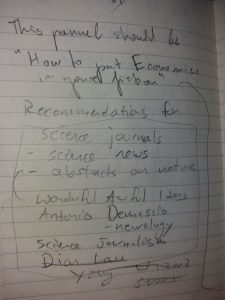 This pannel should be
"How to put Economics
in your fiction"
Recommendations for
science journals
- science news
- abstracts on nature
Wonderful Awful Ideas
Antonio
- neurology
Science Journalism
Dian